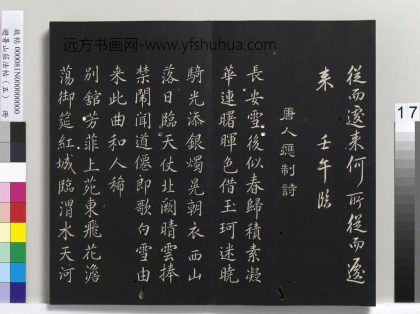 從而遷來何所從而遷
來 壬午臨
唐人應制詩
長安雪後似春歸積素凝
華連曙暉色借玉珂迷曉
騎光添銀燭晃朝衣西山
落日臨天仗北闕晴雲捧
禁闈聞道僊郎歌白雪由
來此曲和人稀
別館芳菲上苑東飛花澹
蕩御筵紅城臨渭水天河
远方书画网-www.yfshuhua.com
故帖 000081N00000000
避暑山莊法帖（五） 冊
17